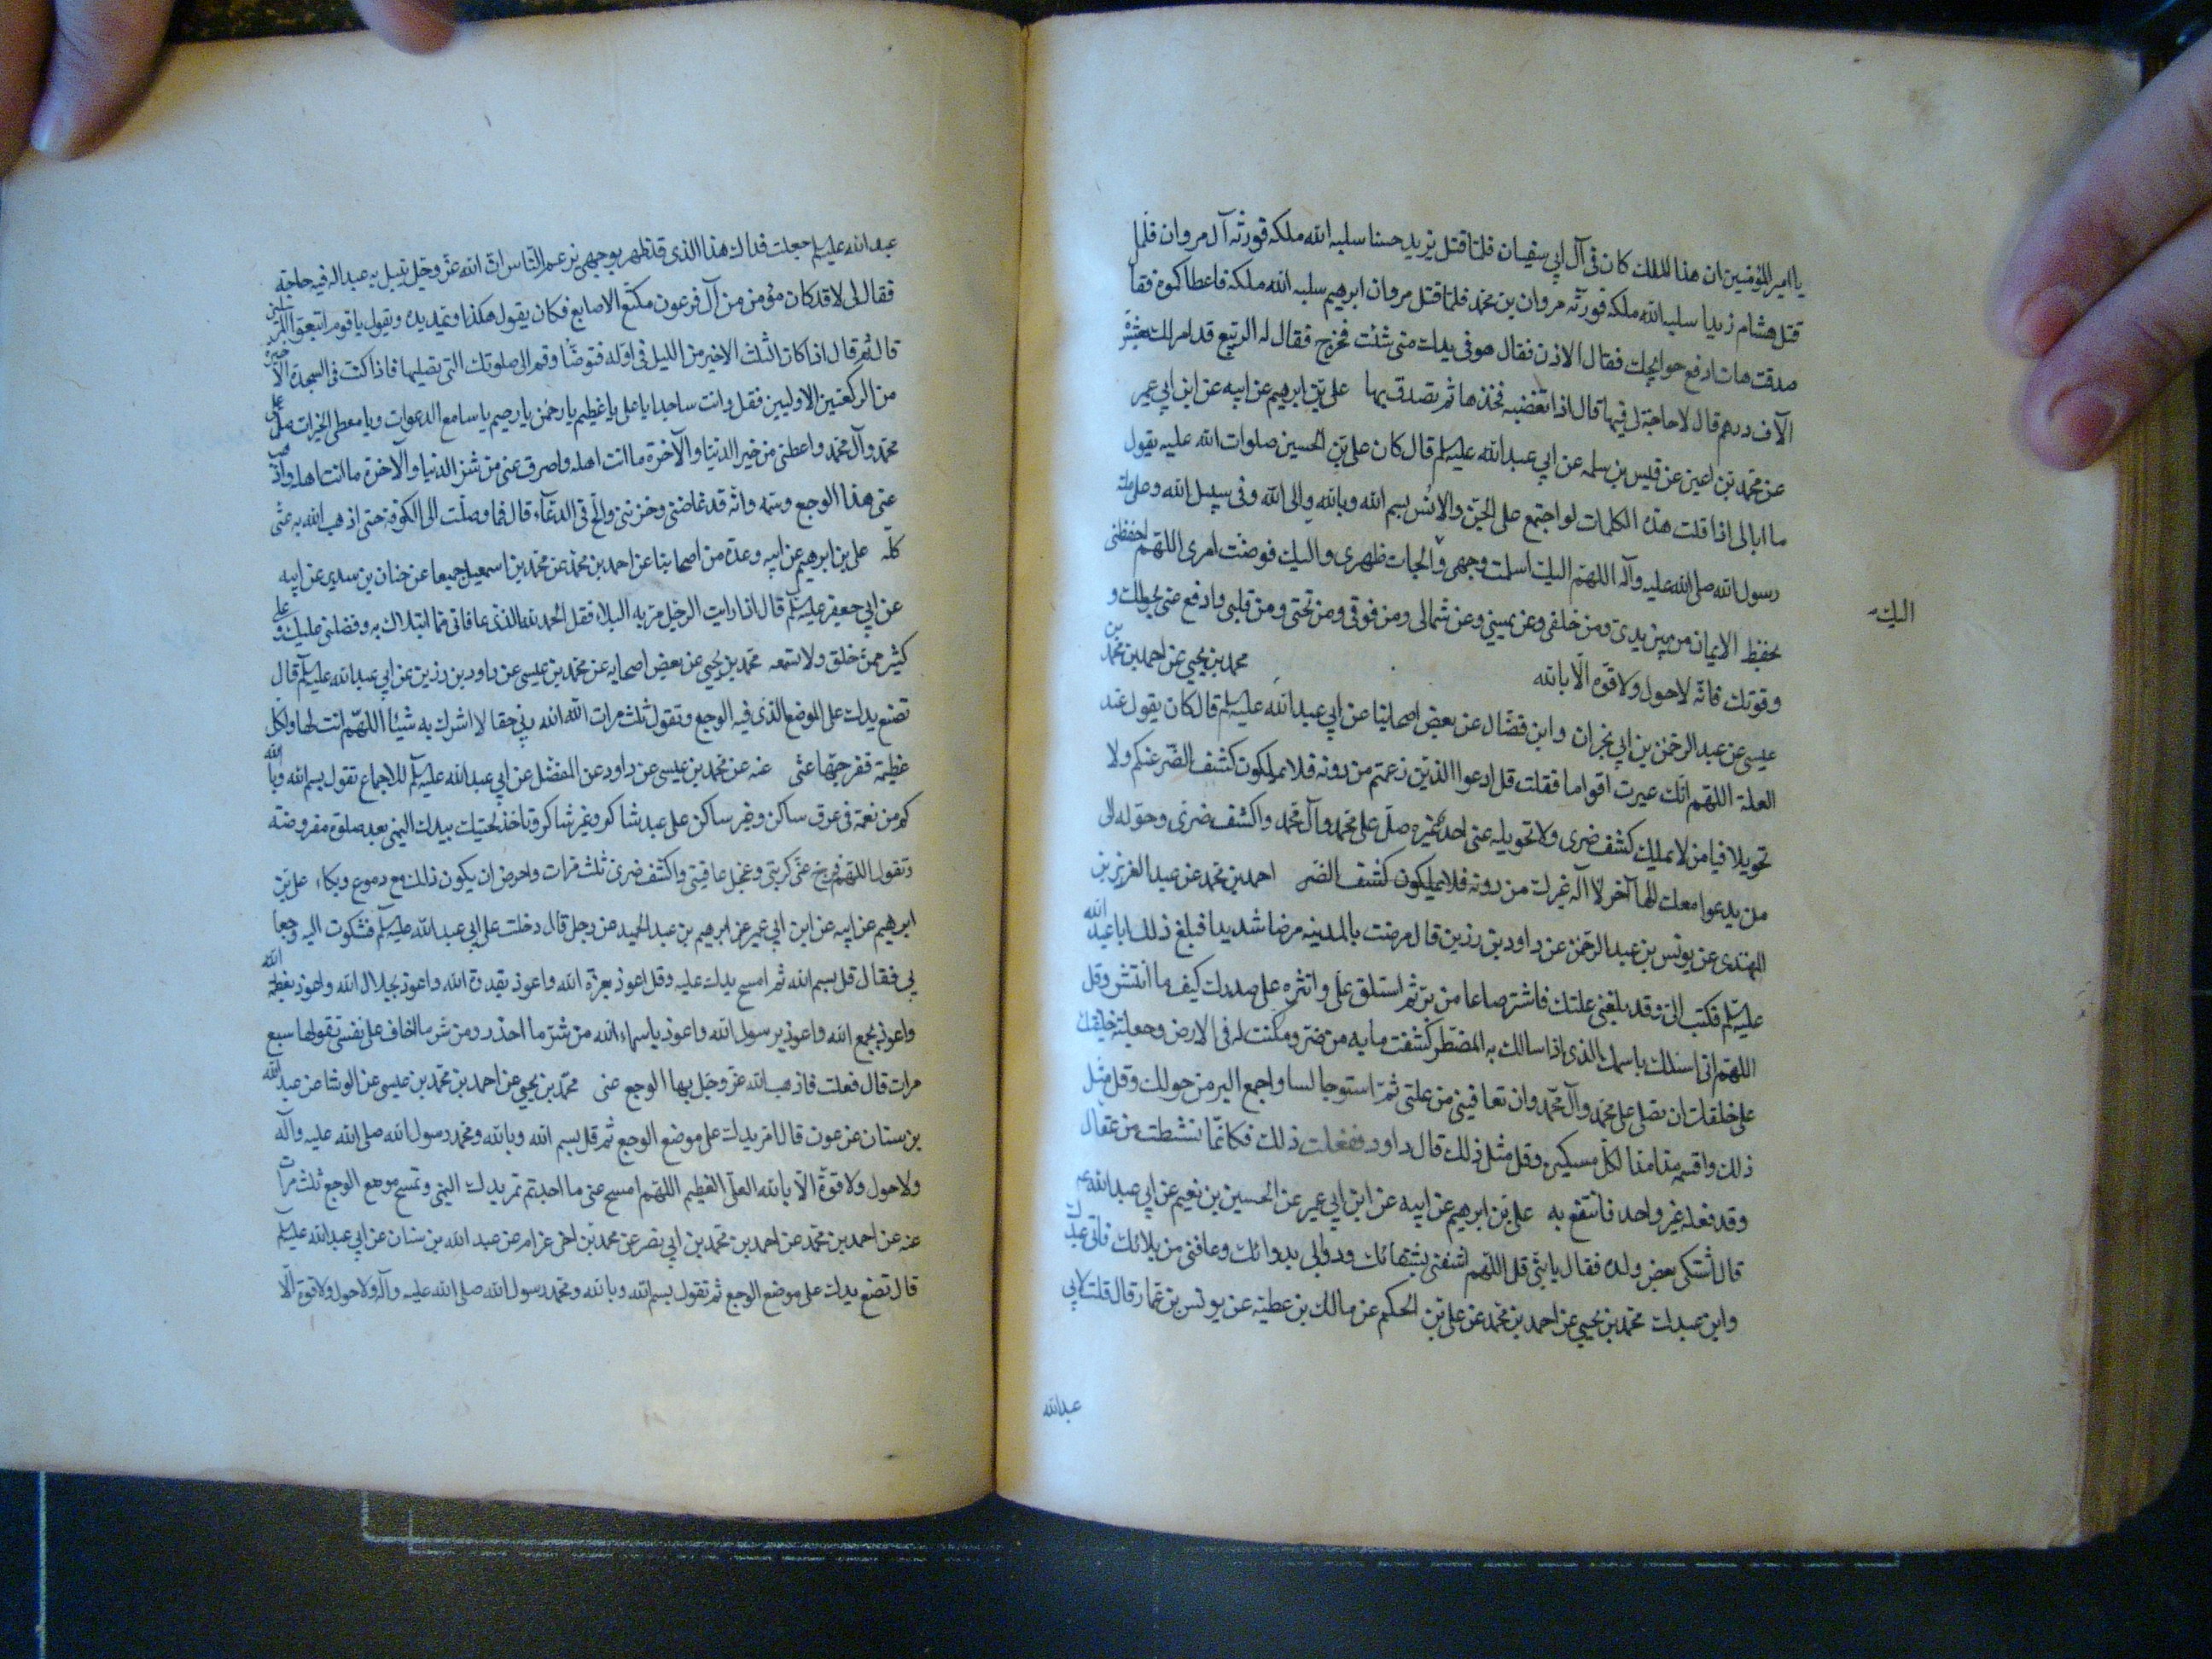 يا امير المؤمنين ان هذا الملك كان فى آل ابى سفيان فلما قتل يزيد حسينا سلبه الله ملكه فورثه آل مروان فلما
قتل هشام زيدا سلبه الله ملكه فورثه مروان بن محمد فلما قتل مروان ابرهيم سلبه الله ملكه فاعطاكموه فقا
صدقت هات ارفع حوائجك فقال الاذن فقال هو فى يدك متى شئت فخرج فقال له الربيع قد امر لك بعشرة
آلاف درهم قال لا حاجة لى فيها قال اذا تغضبه فخذها ثم تصدق بها على بن ابرهيم عن ابيه عن ابن ابي عمير
عن محمد بن اعين عن قيس بن سلمه عن ابي عبد الله عليه السلم قال كان على بن الحسين صلوات الله عليه يقول
ما ابالى اذا قلت هذه الكلمات لو اجتمع على الجن والانس بسم الله وبالله والى الله وفى سبيل الله وعلى ملة
رسول الله صلى الله عليه وآله اللهم اليك اسلمت وجهى والجات ظهرى واليك فوضت امرى اللهم احفظنى
اليك
بحفظ الايمان من بين يدى ومن خلفى وعن يمينى وعن شمالى ومن فوقى ومن تحتى ومن قبلى وادفع عنى بحولك و
وقوتك فانه لا حول ولا قوة الا بالله محمد بن يحيى عن احمد بن محمد بن
عيسى عن عبد الرحمن بن ابي نجران وابن فضال عن بعض اصحابنا عن ابي عبد الله عليه السلم قال كان يقول عند
العلة اللهم انك عيرت اقواما فقلت قل ادعوا الذين زعمتم من دونه فلا يملكون كشف الضر عنكم ولا
تحويلا فيا من لا يملك كشف ضرى ولا تحويله عنى احد غيره صل على محمد وآل محمد واكشف ضرى وحوله الى
من يدعوا معك الها آخر لا اله غيرك من دونه فلا يملكون كشف الضر احمد بن محمد عن عبد العزيز بن
المهتدى عن يونس بن عبد الرحمن عن داود بن رزين قال مرضت بالمدينه مرضا شديدا فبلغ ذلك ابا عبد الله
عليه السلم فكتب الى قد بلغنى علتك فاشتر صاعا من بر ثم استلق على وانثره على صدرك كيف ما انتثر وقل
اللهم انى اسئلك باسمك الذى اذا سالك به المضطر كشفت ما به من ضر ومكنت له فى الارض وجعلته خليفتك
على خلقك ان تصلى على محمد وآل محمد وان تعافينى من علتى ثم استو جالسا واجمع البر من حولك وقل مثل
ذلك واقسمه مدا مدا لكل مسكين وقل مثل ذلك قال داود ففعلت ذلك فكانما نشطت من عقال
وقد فعله غير واحد فانتفع به على بن ابرهيم عن ابيه عن ابن ابي عمير عن الحسين بن نعيم عن ابي عبد الله عم
قال اشتكى بعض ولده فقال يا بنى قل اللهم اشفنى بشفائك وداونى بدوائك وعافنى من بلائك فانى عبدك
وابن عبدك محمد بن يحيى عن احمد بن محمد عن على بن الحكم عن مالك بن عطيه عن يونس بن عمار قال قلت لابي
عبد الله
عبد الله عليه السلم جعلت فداك هذا الذى قد ظهر بوجهى يزعم الناس ان الله عز وجل لم يبتل به عبدا له فيه حاجة
فقال لى لا قد كان مؤمن من آل فرعون مكنع الاصابع فكان يقول هكذا ويمد يده ويقول يا قوم اتبعوا المرسلين
قال ثم قال اذا كان الثلث الاخير من الليل فى اوله فتوضا وقم الى صلوتك التى تصليها فاذا كنت فى السجدة الاخيرة
من الركعتين الاوليين فقل وانت ساجد يا على يا عظيم يا رحمن يا رحيم يا سامع الدعوات ويا معطى الخيرات صل على
محمد وآل محمد واعطنى من خير الدنيا والآخرة ما انت اهله واصرف عنى من شر الدنيا والآخرة ما انت اهله واذهب
عنى هذا الوجع وسمه وانه قد غاضنى وحزننى والح فى الدعاء قال فما وصلت الى الكوفة حتى اذهب الله به عنى
كله على بن ابرهيم عن ابيه وعدة من اصحابنا عن احمد بن محمد عن محمد بن اسمعيل جميعا عن حنان بن سدير عن ابيه
عن ابي جعفر عليه السلم قال اذا رايت الرجل مر به البلاء فقل الحمد لله الذى عافانى مما ابتلاك به وفضلنى عليك وعلى
كثير ممن خلق ولا تسمعه محمد بن يحيى عن بعض اصحابه عن محمد بن عيسى عن داود بن رزين عن ابي عبد الله عليه السلم قال
تضع يدك على الموضع الذى فيه الوجع وتقول ثلث مرات الله الله ربى حقا لا اشرك به شيئا اللهم انت لها ولكل
عظيمة ففرجها عنى عنه عن محمد بن عيسى عن داود عن المفضل عن ابي عبد الله عليه السلم للاوجاع تقول بسم الله وبالله
كم من نعمة فى عرق ساكن وغير ساكن على عبد شاكر وغير شاكر وتاخذ لحيتك بيدك اليمنى بعد صلوة مفروضة
وتقول اللهم فرج عنى كربتى وعجل عافيتى واكشف ضرى ثلث مرات واحرص ان يكون ذلك مع دموع وبكاء على بن
ابرهيم عن ابيه عن ابن ابي عمير عن ابرهيم بن عبد الحميد عن رجل قال دخلت على ابي عبد الله عليه السلم فشكوت اليه وجعا
بي فقال قل بسم الله ثم امسح يدك عليه وقل اعوذ بعزة الله واعوذ بقدرة الله واعوذ بجلال الله واعوذ بعظمة الله
واعوذ بجمع الله واعوذ برسول الله واعوذ باسماء الله من شر ما احذر ومن شر ما اخاف على نفسى تقولها سبع
مرات قال ففعلت فاذهب الله عز وجل بها الوجع عنى محمد بن يحيى عن احمد بن محمد بن عيسى عن الوشا عن عبد الله
بن سنان عن عون قال امر يدك على موضع الوجع ثم قل بسم الله وبالله ومحمد رسول الله صلى الله عليه وآله
ولا حول ولا قوة الا بالله العلى العظيم اللهم امسح عنى ما اجد ثم تمر يدك اليمنى وتمسح موضع الوجع ثلث مرات
عنه عن احمد بن محمد عن احمد بن محمد بن ابي نصر عن محمد بن اخى عرام عن عبد الله بن سنان عن ابي عبد الله عليه السلم
قال تضع يدك على موضع الوجع ثم تقول بسم الله وبالله ومحمد رسول الله صلى الله عليه وآله ولا حول ولا قوة الا